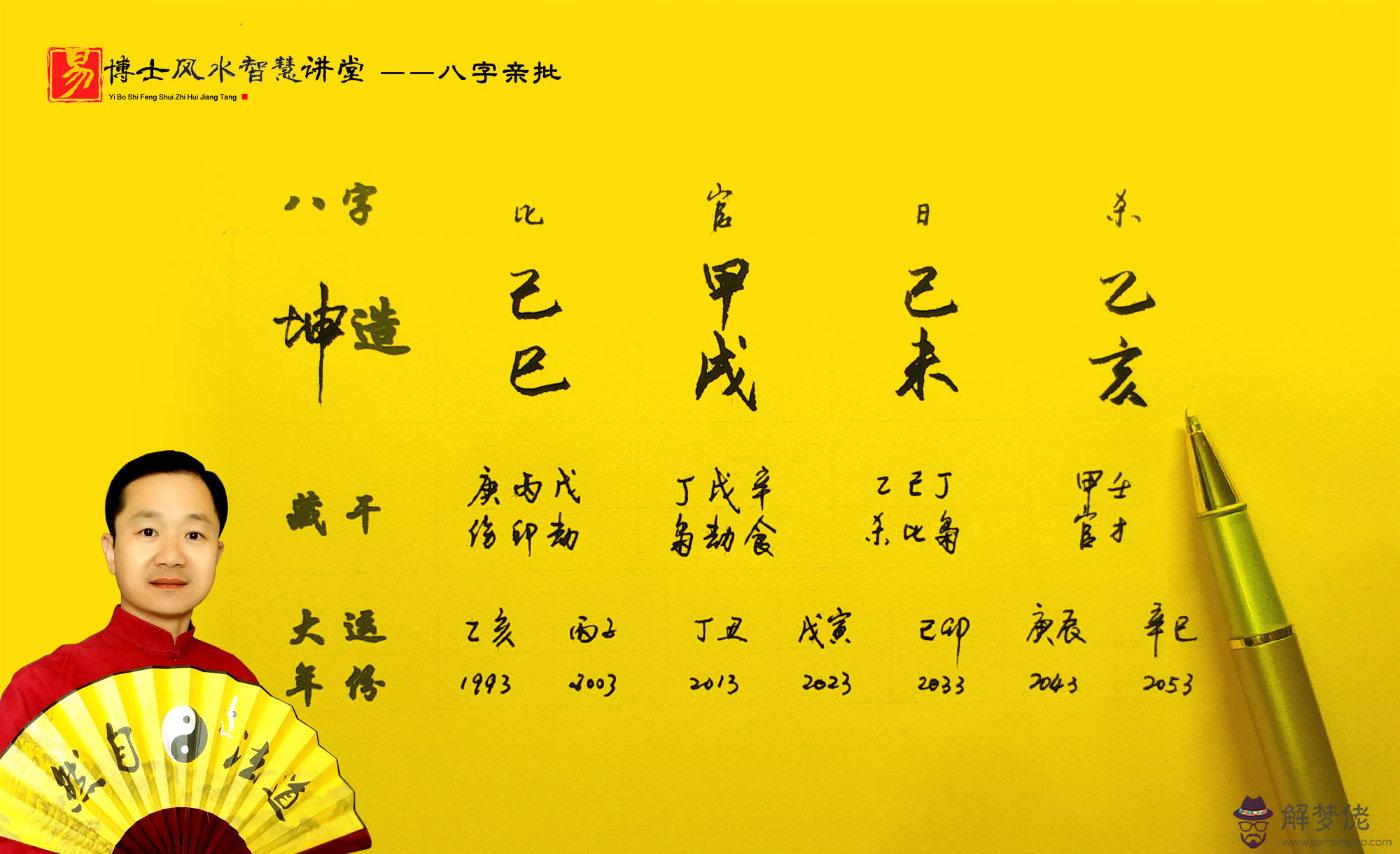 易博士风水智慧讲堂 ——八字亲批
Yi Bo Shi Feng Shui Zhi Hui Jiang Tang
八字 比 官 日 杀
坤造 己 甲 己 乙
巳 戌 未 亥
藏干 庚丙戊 丁戊辛 乙己丁 甲壬
伤印劫 枭劫食 杀比枭 官才
大运 乙亥 丙子 丁丑 戊寅 己卯 庚辰 辛巳
年份 1993 2003 2013 2023 2033 2043 2053
然自法道
解梦佬